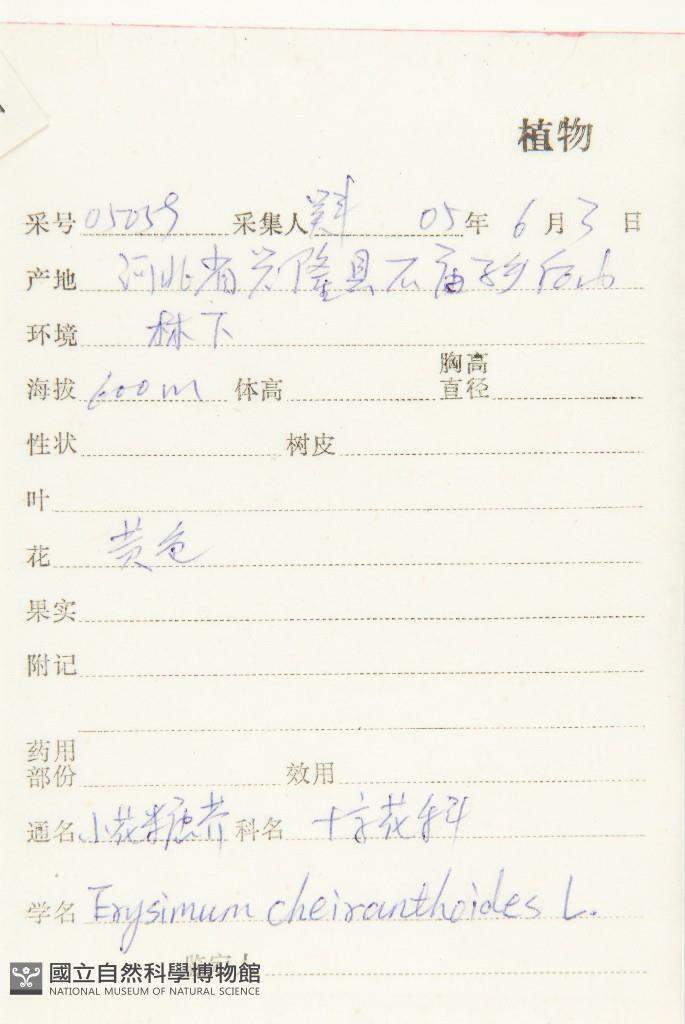 植物
采号 05059 采集人 05年 6月3日
产地 河北省兴隆县石庙子乡后山
环境 林下
海拔 600m 体高 胸高直径
性状 树皮
叶
花 黄色
果实
附记
药用部份 效用
通名 小花糖芥 科名 十字花科
学名 Erysimum cheiranthoides L.
鉴定人
國立自然科學博物館
NATIONAL MUSEUM OF NATURAL SCIENCE